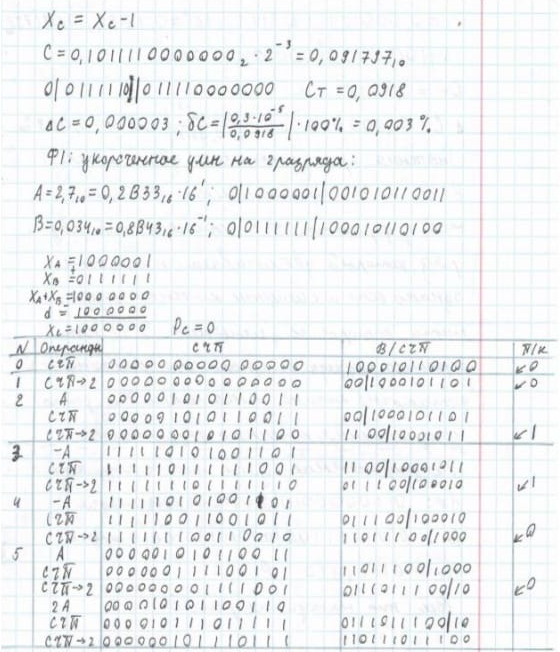 Xc = Xc-1
C=0,1011110000000₂·2⁻³=0,091797₁₀
Cт =0,0918
ΔC=0,000003; δC=|0,3·10⁻⁵/0,0918|·100% = 0,003%
Ф1: укороченное умн на 2 разряда:
A=2,7₁₀=0,2B33₁₆·16¹; 0|1000001|001010110011
B=0,034₁₀=0,8B43₁₆·16⁻¹; 0|0111111|100010110100
XA=1000001
XB=0111111
XA+XB=10000000
d = 1000000
Xc=1000000 Pc=0
N Операнды СЧП В/СЧП П/к
0 СЧП 0000000000000000 100010110100 ↙0
1 СЧП→2 0000000000000000 00|1000101101 ↙0
2 A 0000001010110011
СЧП 0000001010110011 00|1000101101
СЧП→2 0000000010101100 1100|10001011 ↙1
3 -A 1111110101001101
СЧП 1111110111111001 1100|10001011
СЧП→2 1111111101111110 011100|100010 ↙1
4 -A 1111110101001101
СЧП 1111110011001011 011100|100010
СЧП→2 1111111100110010 11011100|1000 ↙0
5 A 0000001010110011
СЧП 0000000111100101 11011100|1000
СЧП→2 0000000001111001 0110111100|10 ↙0
2A 0000010101100110
СЧП 0000010111011111
СЧП→2 0000000101110111